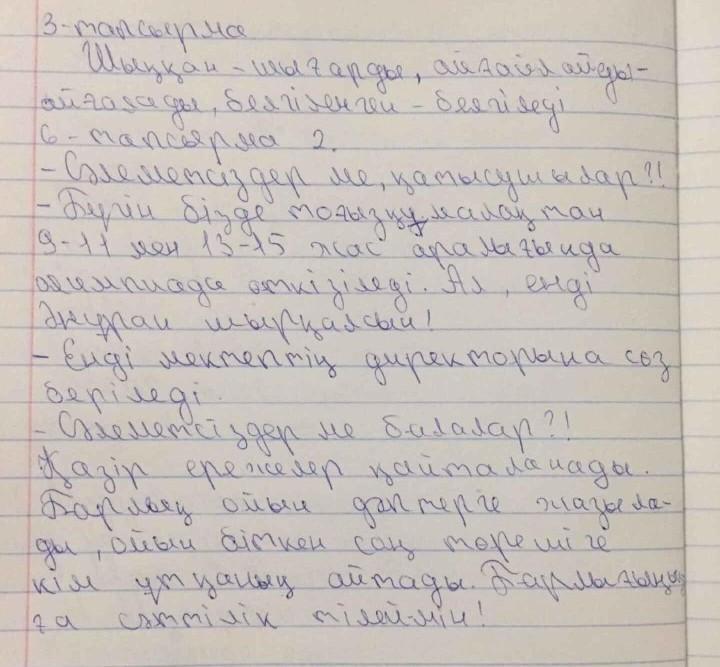 3-тапсырма
Шыққан - шығарды, айғайлайды-
айғалады, белгіленген - белгіледі
6 - тапсырма 2.
- Сәлеметсіздер ме, қатысушылар?!
- Бүгін бізде тоғызқұмалақтан
9-11 мен 13-15 жас аралығында
олимпиада өткізіледі. Ал, енді
Әнұран шырқалсын!
- Енді мектептің директорына сөз
беріледі.
- Сәлеметсіздер ме балалар?!
Қазір ережелер қайталанады.
Барлық ойын дәптерге жазыла-
ды, ойын біткен соң төрешіге
кім ұтқанын айтады. Барлығыңыз
ға сәттілік тілеймін!